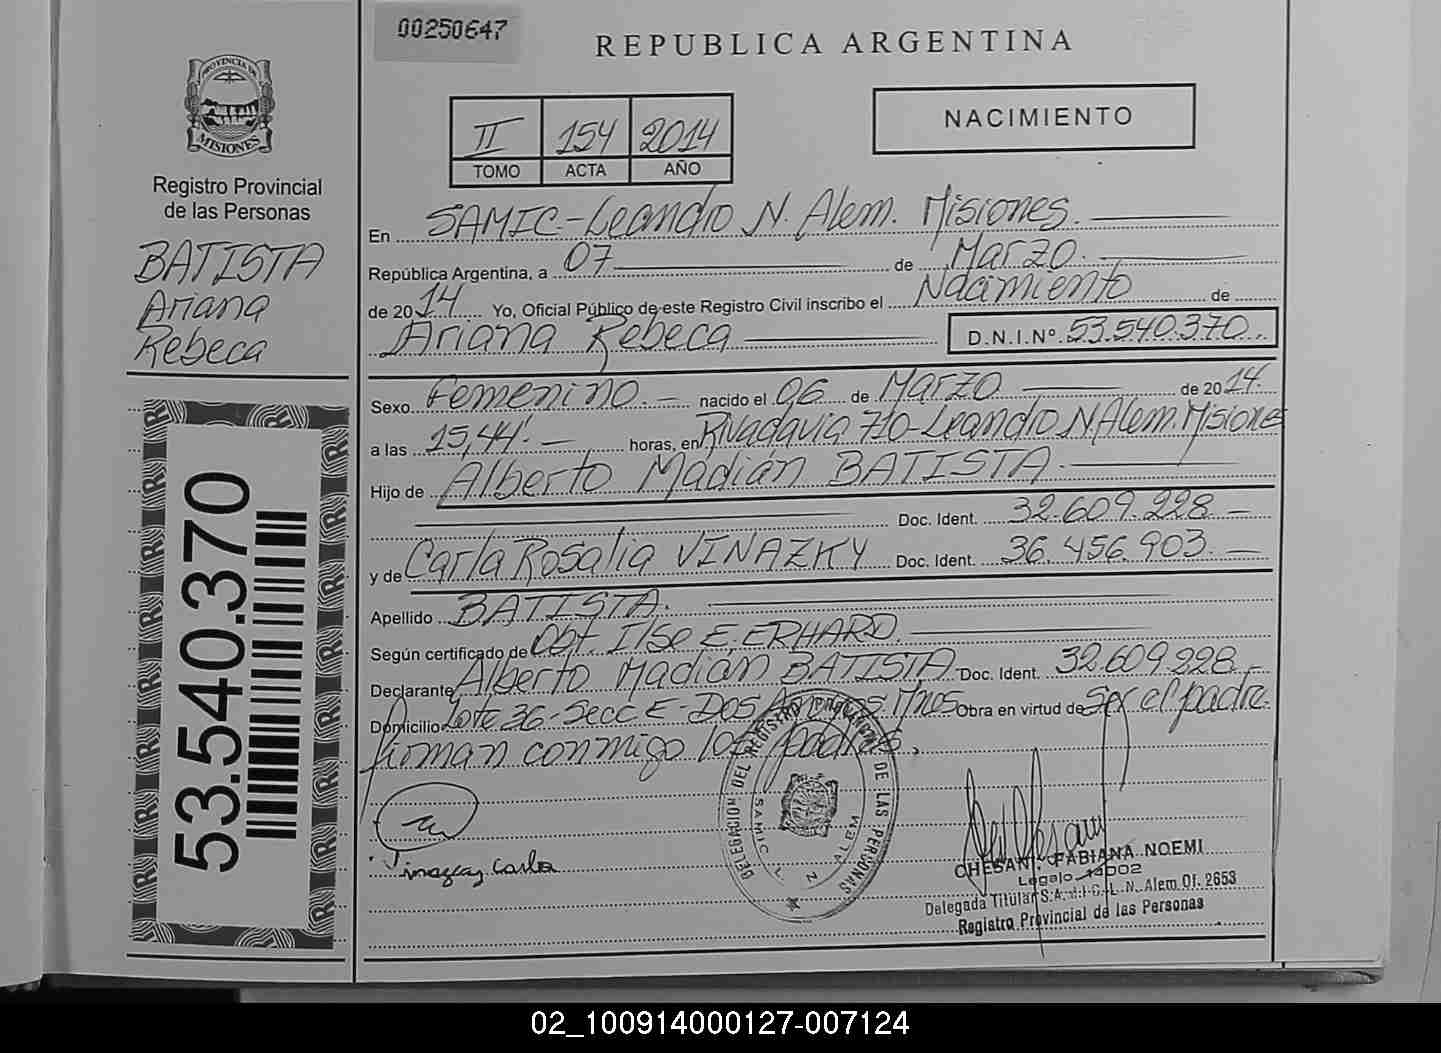 00250647
REPUBLICA ARGENTINA
PROVINCIA DE
MISIONES
Registro Provincial
de las Personas
BATISTA
Ariana
Rebeca
53.540.370
II 154 2014
TOMO ACTA AÑO
NACIMIENTO
En SAMIC-Leandro N. Alem. Misiones.
República Argentina, a 07 de Marzo.
de 2014 Yo, Oficial Público de este Registro Civil inscribo el Nacimiento de
Ariana Rebeca D.N.I.Nº. 53.540.370
Sexo Femenino.- nacido el 06 de Marzo de 2014.
a las 15,44'.- horas, en Rivadavia 710-Leandro N.Alem.Misiones
Hijo de Alberto Madián BATISTA.
Doc. Ident. 32.609.228-
y de Carla Rosalia VINAZKY Doc. Ident. 36.456.903.-
Apellido BATISTA.
Según certificado de Obst. Ilse E. ERHARD.
Declarante Alberto Madián BATISTA Doc. Ident. 32.609.228-
Domicilio Lote 36-Secc E-Dos Arroyos Mnes Obra en virtud de Ser el padre.
firman conmigo los padres.
DELEGACION DEL REGISTRO PROVINCIAL DE LAS PERSONAS
SAMIC L N ALEM
CHESANI, FABIANA NOEMI
Legajo 14002
Delegada Titular S.A.M.I.C.-L.N. Alem Of. 2653
Registro Provincial de las Personas
02_100914000127-007124